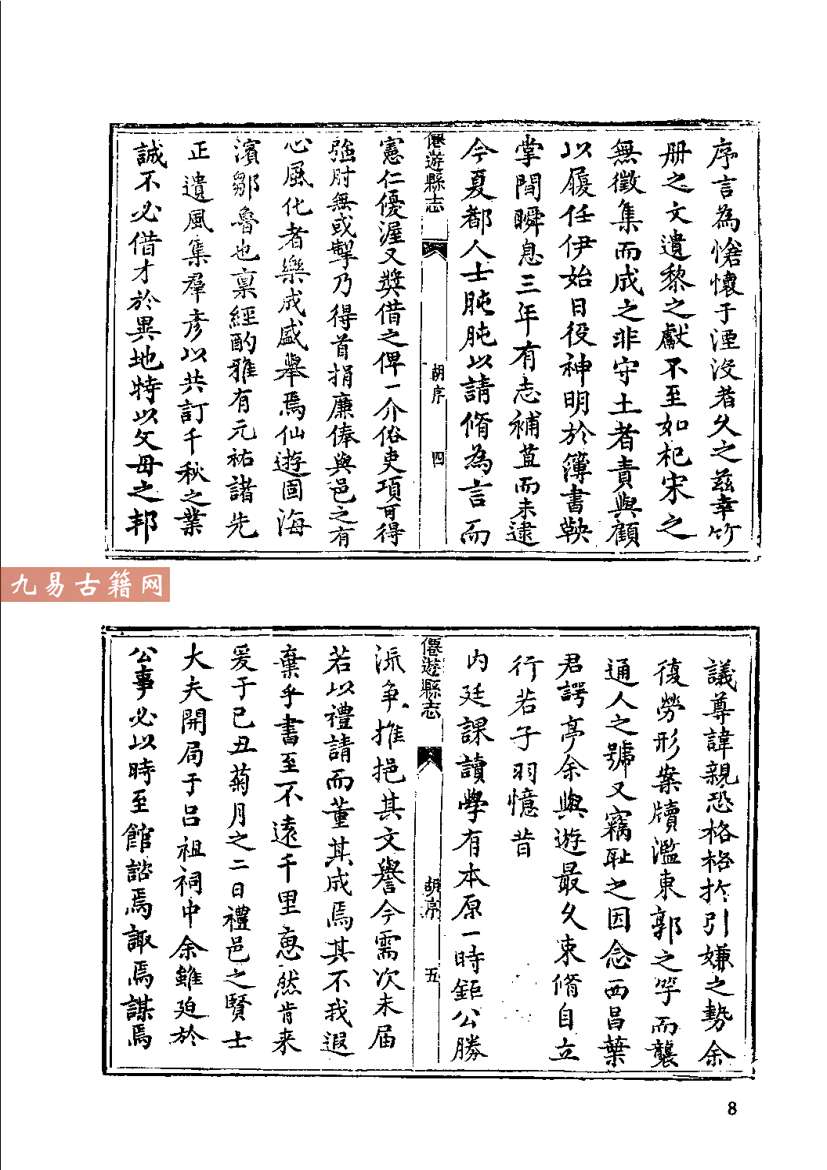 序言為愴懷子湮沒者久之茲幸竹
册之文遺黎之獻不至如杞宋之
無徵集而成之非守土者責與顧
以履任伊始日役神明於簿書鞅
掌間瞬息三年有志補苴而未逮
今夏都人士肫肫以請脩為言而
僊遊縣志
胡序
四
憲仁優渥又奬借之俾一介俗吏項可得
強肘無或掣乃得首捐廉俸與邑之有
心風化者樂成盛舉焉仙遊固海
濱鄒魯也稟經酌雅有元祐諸先
正遺風集羣彥以共訂千秋之業
誠不必借才於異地特以父母之邦
九易古籍网
議尊諱親恐格格於引嫌之勢余
復勞形案牘濫東郭之竽而襲
通人之號又竊耻之因念西昌葉
君諤亭余與遊最久束脩自立
行若子羽憶昔
內廷課讀學有本原一時鉅公勝
僊遊縣志
胡序
五
流争推挹其文譽今需次未届
若以禮請而董其成焉其不我遐
棄乎書至不遠千里恵然肯来
爰于己丑菊月之二日禮邑之賢士
大夫開局于吕祖祠中余雖廹於
公事必以時至館諮焉諏焉謀焉
8